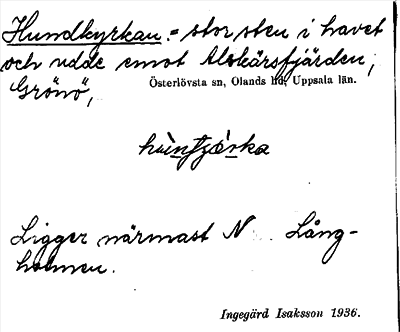 Hundkyrkan = stor sten i havet
och udde emot Alskärsfjärden,
Grönö,
Österlövsta sn, Olands hd, Uppsala län.
Ligger närmast N Lång-
holmen.
Ingegärd Isaksson 1936.